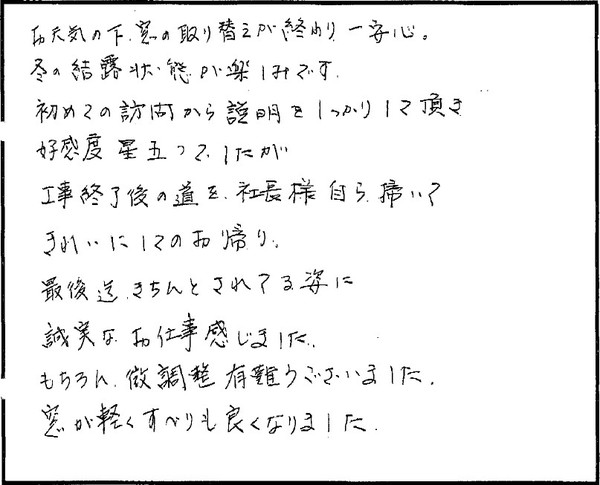 お天気の下、窓の取り替えが終わり一安心。
冬の結露状態が楽しみです。
初めての訪問から説明をしっかりして頂き
好感度星五つでしたが
工事終了後の道を、社長様自ら、掃いて
きれいにしてのお帰り。
最後迄、きちんとされてる姿に
誠実なお仕事感じました。
もちろん、微調整有難うございました。
窓が軽くすべりも良くなりました。